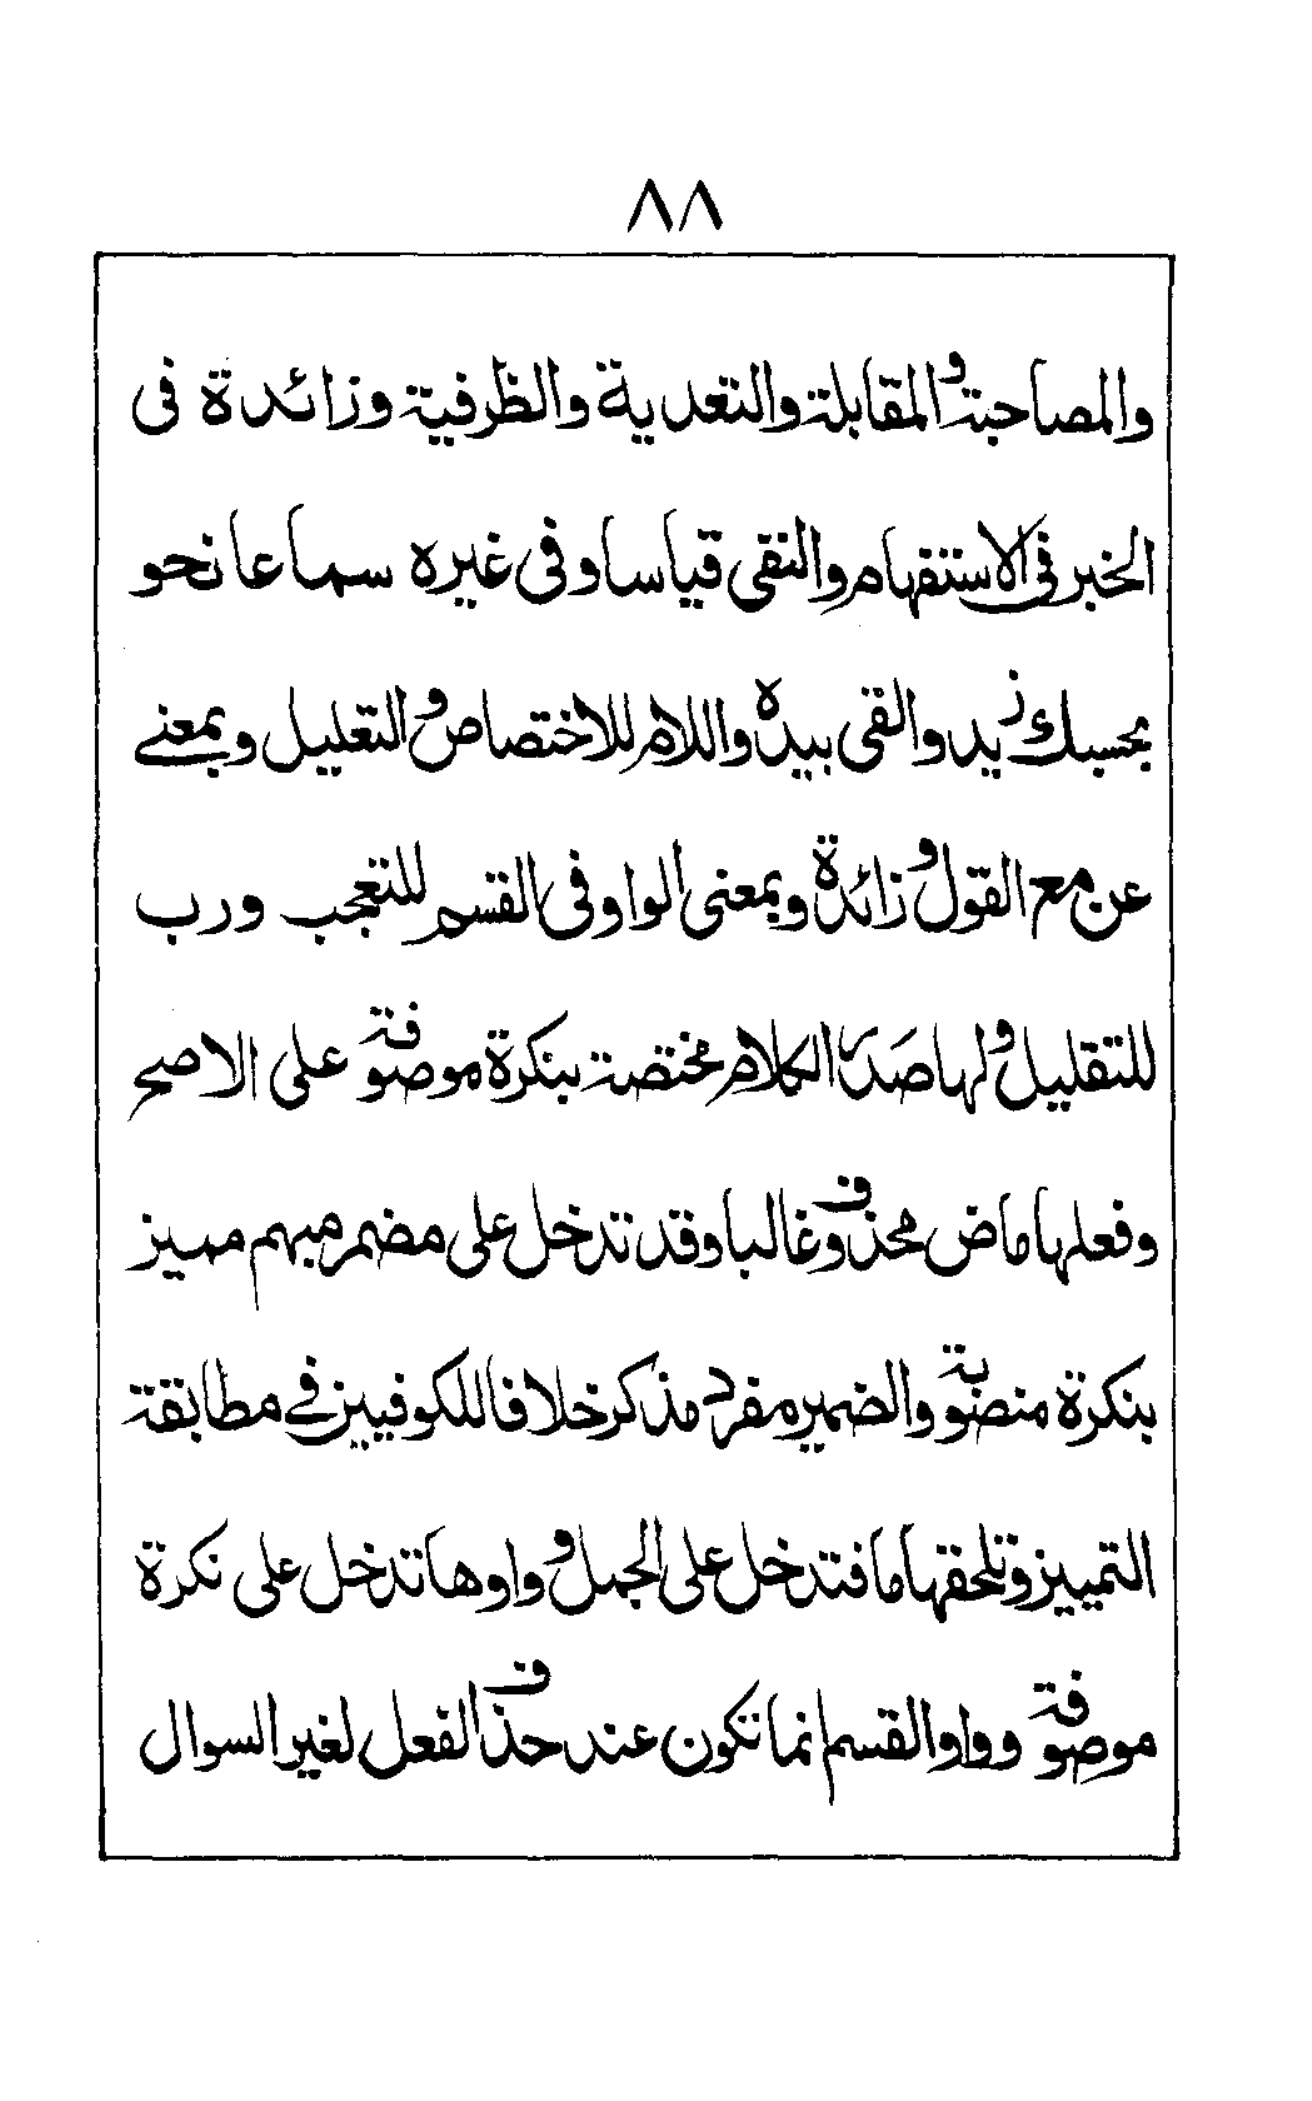 ٨٨
والمصاحبة والمقابلة والتعدية والظرفية وزائدة فى
الخبر فى الاستفهام والنفى قياسا وفى غيره سماعا نحو
بحسبك زيد والقى بيده واللام للاختصاص والتعليل وبمعنے
عن مع القول وزائدة وبمعنى الواو فى القسم للتعجب ورب
للتقليل ولها صدر الكلام مختصة بنكرة موصوفة على الاصح
وفعلها ماض محذوف غالبا وقد تدخل على مضمر مبهم مميز
بنكرة منصوبة والضمير مفرد مذكر خلافا للكوفيين فے مطابقة
التمييز وتلحقها ما فتدخل على الجمل وواوها تدخل على نكرة
موصوفة وواو القسم انما تكون عند حذف الفعل لغير السوال